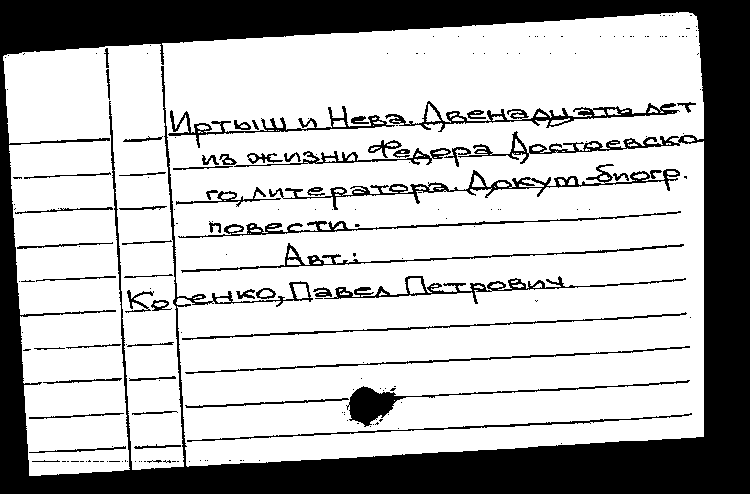 Иртыш и Нева. Двенадцать лет
из жизни Федора Достоевско-
го, литератора. Докум.-биогр.
повести.
Авт.:
Косенко, Павел Петрович.